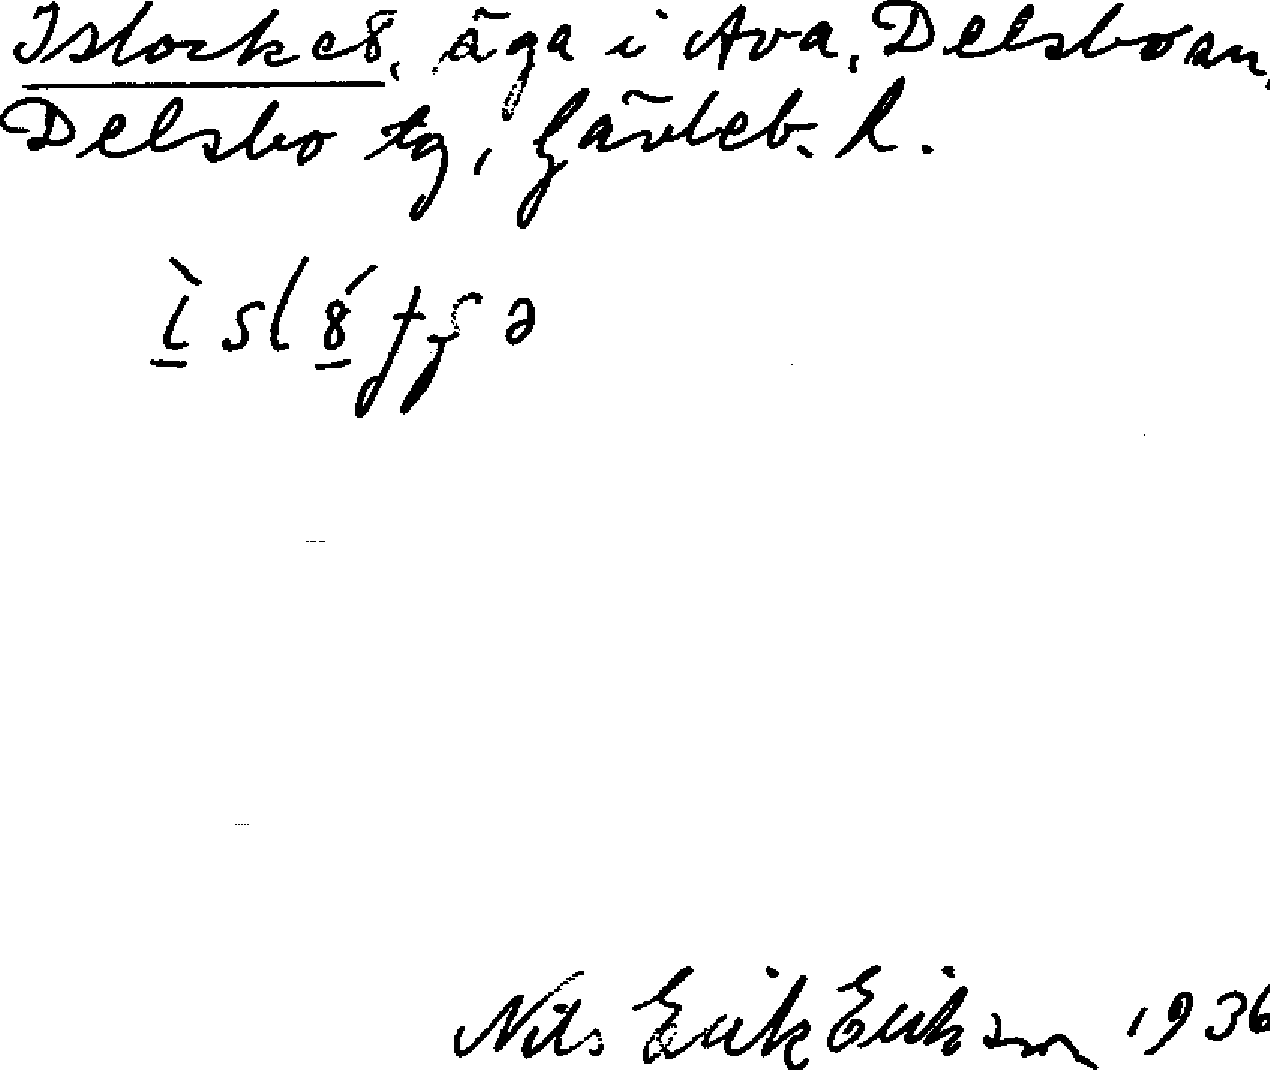 Islocket, äga i Ava, Delsbo sn,
Delsbo tg, Gävleb. l.
Nils Erik Erikson 1936